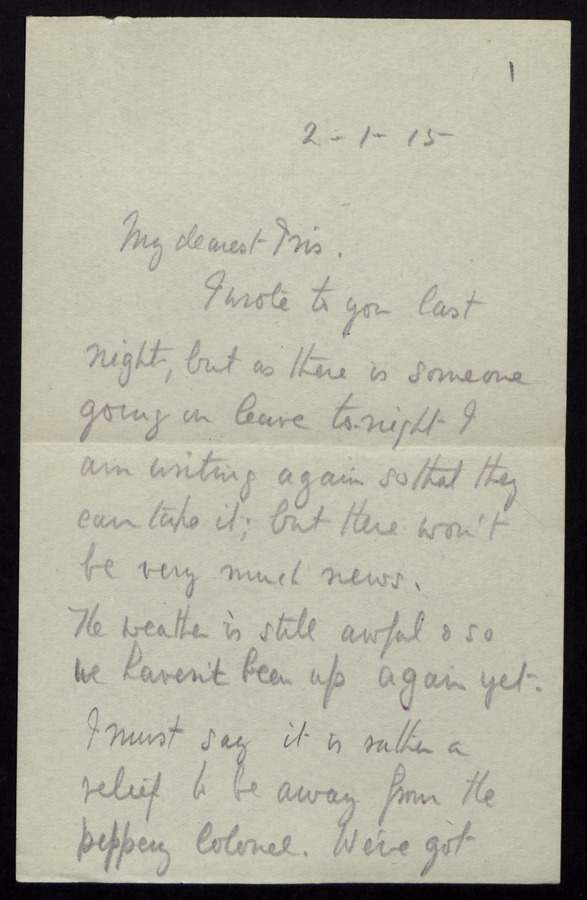 1
2-1-15
My dearest Iris.
I wrote to you last
night, but as there is someone
going on leave to-night I
am writing again so that they
can take it; but there won't
be very much news.
The weather is still awful & so
we haven't been up again yet.
I must say it is rather a
relief to be away from the
peppery Colonel. We've got